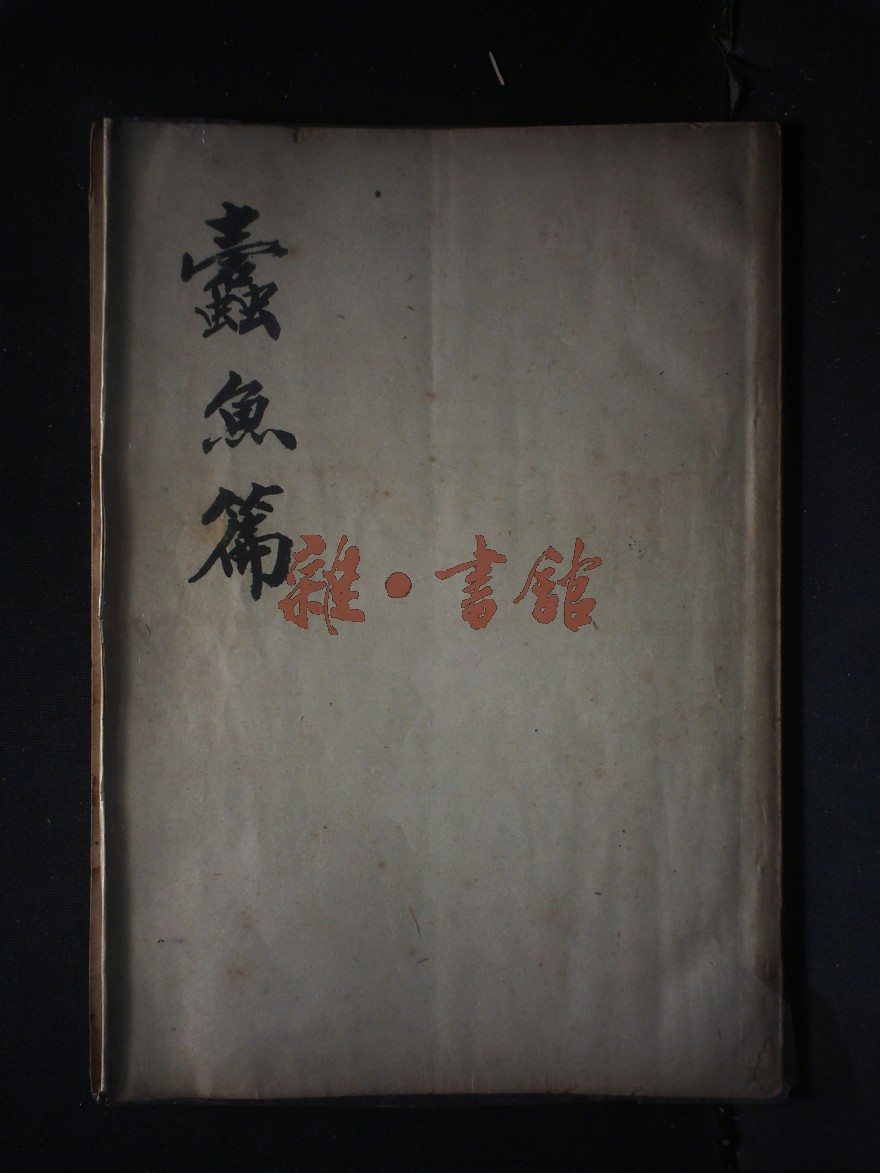 蠹魚篇
雜·書館